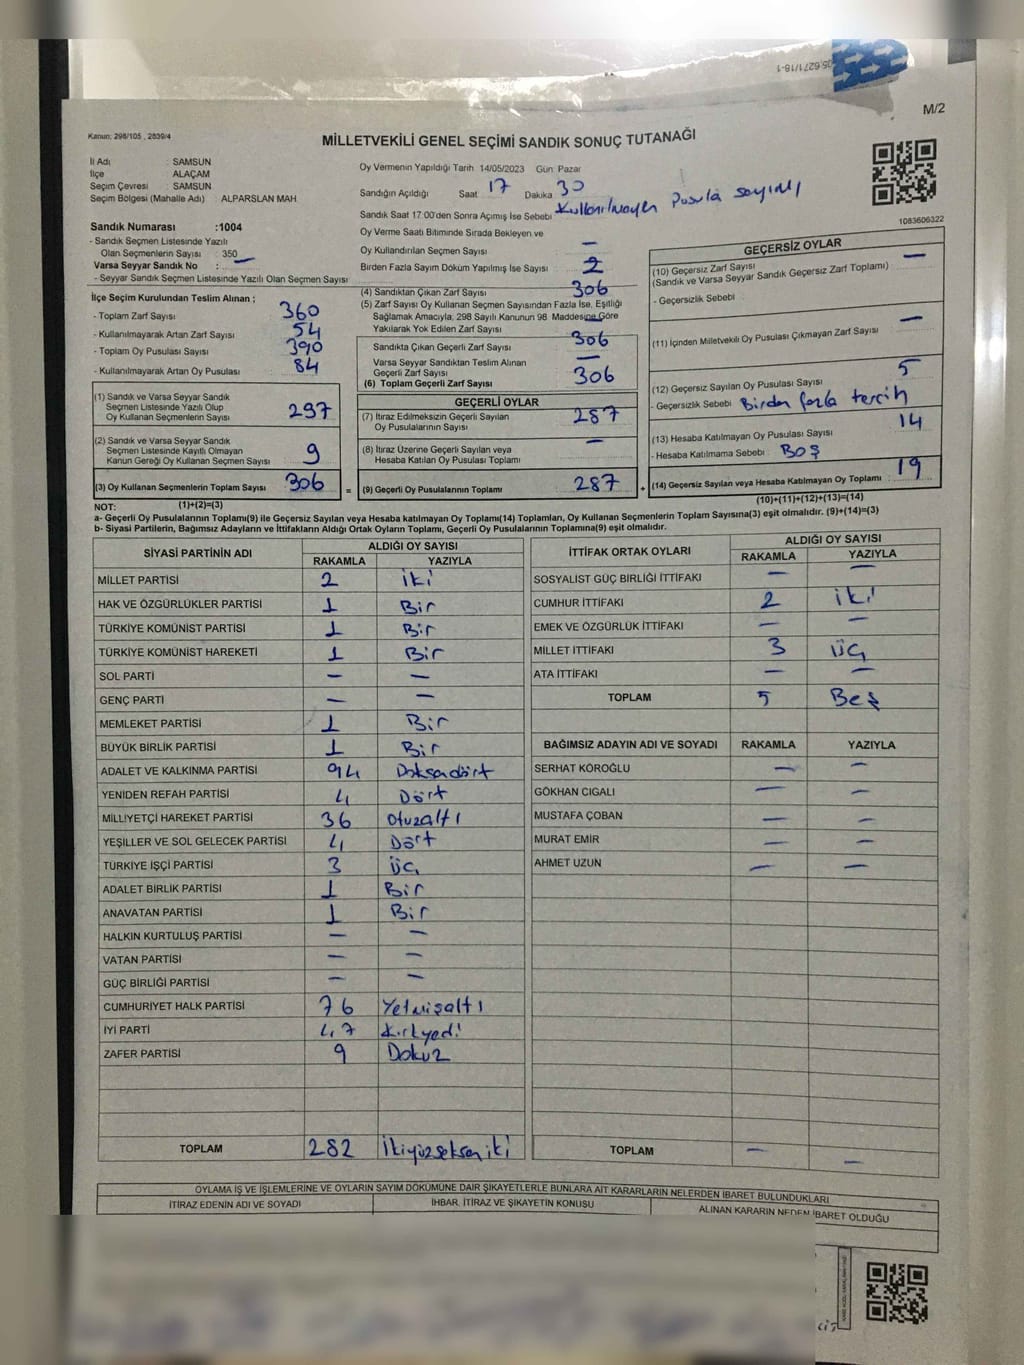 05.627/18-1
M/2
Kanun: 298/105 , 2839/4
MİLLETVEKİLİ GENEL SEÇİMİ SANDIK SONUÇ TUTANAĞI
İl Adı : SAMSUN
İlçe : ALAÇAM
Seçim Çevresi : SAMSUN
Seçim Bölgesi (Mahalle Adı) : ALPARSLAN MAH
Sandık Numarası :1004
- Sandık Seçmen Listesinde Yazılı
Olan Seçmenlerin Sayısı : 350
Varsa Seyyar Sandık No : —
- Seyyar Sandık Seçmen Listesinde Yazılı Olan Seçmen Sayısı
Oy Vermenin Yapıldığı Tarih 14/05/2023 Gün Pazar
Sandığın Açıldığı Saat 17 Dakika 30
Sandık Saat 17.00'den Sonra Açımış İse Sebebi Kullanılmayan Pusula sayımı
Oy Verme Saati Bitiminde Sırada Bekleyen ve
Oy Kullandırılan Seçmen Sayısı —
Birden Fazla Sayım Döküm Yapılmış İse Sayısı 2
1083606322
İlçe Seçim Kurulundan Teslim Alınan ;
- Toplam Zarf Sayısı 360
- Kullanılmayarak Artan Zarf Sayısı 54
- Toplam Oy Pusulası Sayısı 390
- Kullanılmayarak Artan Oy Pusulası 84
(1) Sandık ve Varsa Seyyar Sandık
Seçmen Listesinde Yazılı Olup
Oy Kullanan Seçmenlerin Sayısı 297
(2) Sandık ve Varsa Seyyar Sandık
Seçmen Listesinde Kayıtlı Olmayan
Kanun Gereği Oy Kullanan Seçmen Sayısı 9
(3) Oy Kullanan Seçmenlerin Toplam Sayısı 306
(4) Sandıktan Çıkan Zarf Sayısı 306
(5) Zarf Sayısı Oy Kullanan Seçmen Sayısından Fazla İse, Eşitliği
Sağlamak Amacıyla, 298 Sayılı Kanunun 98. Maddesine Göre
Yakılarak Yok Edilen Zarf Sayısı —
Sandıkta Çıkan Geçerli Zarf Sayısı 306
Varsa Seyyar Sandıktan Teslim Alınan
Geçerli Zarf Sayısı —
(6) Toplam Geçerli Zarf Sayısı 306
GEÇERLİ OYLAR
(7) İtiraz Edilmeksizin Geçerli Sayılan
Oy Pusulalarının Sayısı 287
(8) İtiraz Üzerine Geçerli Sayılan veya
Hesaba Katılan Oy Pusulası Toplamı —
= (9) Geçerli Oy Pusulalarının Toplamı 287
GEÇERSİZ OYLAR
(10) Geçersiz Zarf Sayısı —
(Sandık ve Varsa Seyyar Sandık Geçersiz Zarf Toplamı)
- Geçersizlik Sebebi
(11) İçinden Milletvekili Oy Pusulası Çıkmayan Zarf Sayısı —
(12) Geçersiz Sayılan Oy Pusulası Sayısı 5
- Geçersizlik Sebebi Birden fazla tercih
(13) Hesaba Katılmayan Oy Pusulası Sayısı 14
- Hesaba Katılmama Sebebi BOŞ
+ (14) Geçersiz Sayılan veya Hesaba Katılmayan Oy Toplamı : 19
NOT: (1)+(2)=(3)
(10)+(11)+(12)+(13)=(14)
a- Geçerli Oy Pusulalarının Toplamı(9) ile Geçersiz Sayılan veya Hesaba katılmayan Oy Toplamı(14) Toplamları, Oy Kullanan Seçmenlerin Toplam Sayısına(3) eşit olmalıdır. (9)+(14)=(3)
b- Siyasi Partilerin, Bağımsız Adayların ve İttifakların Aldığı Ortak Oyların Toplamı, Geçerli Oy Pusulalarının Toplamına(9) eşit olmalıdır.
SİYASİ PARTİNİN ADI ALDIĞI OY SAYISI
RAKAMLA YAZIYLA
MİLLET PARTİSİ 2 iki
HAK VE ÖZGÜRLÜKLER PARTİSİ 1 Bir
TÜRKİYE KOMÜNİST PARTİSİ 1 Bir
TÜRKİYE KOMÜNİST HAREKETİ 1 Bir
SOL PARTİ — —
GENÇ PARTİ — —
MEMLEKET PARTİSİ 1 Bir
BÜYÜK BİRLİK PARTİSİ 1 Bir
ADALET VE KALKINMA PARTİSİ 94 Doksandört
YENİDEN REFAH PARTİSİ 4 Dört
MİLLİYETÇİ HAREKET PARTİSİ 36 otuzaltı
YEŞİLLER VE SOL GELECEK PARTİSİ 4 Dört
TÜRKİYE İŞÇİ PARTİSİ 3 üç
ADALET BİRLİK PARTİSİ 1 Bir
ANAVATAN PARTİSİ 1 Bir
HALKIN KURTULUŞ PARTİSİ — —
VATAN PARTİSİ — —
GÜÇ BİRLİĞİ PARTİSİ — —
CUMHURİYET HALK PARTİSİ 76 Yetmişaltı
İYİ PARTİ 47 Kırkyedi
ZAFER PARTİSİ 9 Dokuz
TOPLAM 282 İkiyüzsekseniki
İTTİFAK ORTAK OYLARI ALDIĞI OY SAYISI
RAKAMLA YAZIYLA
SOSYALİST GÜÇ BİRLİĞİ İTTİFAKI — —
CUMHUR İTTİFAKI 2 iki
EMEK VE ÖZGÜRLÜK İTTİFAKI — —
MİLLET İTTİFAKI 3 üç
ATA İTTİFAKI — —
TOPLAM 5 Beş
BAĞIMSIZ ADAYIN ADI VE SOYADI RAKAMLA YAZIYLA
SERHAT KÖROĞLU — —
GÖKHAN CIGALI — —
MUSTAFA ÇOBAN — —
MURAT EMİR — —
AHMET UZUN — —
TOPLAM — —
OYLAMA İŞ VE İŞLEMLERİNE VE OYLARIN SAYIM DÖKÜMÜNE DAİR ŞİKAYETLERLE BUNLARA AİT KARARLARIN NELERDEN İBARET BULUNDUKLARI
İTİRAZ EDENİN ADI VE SOYADI İHBAR, İTİRAZ VE ŞİKAYETİN KONUSU ALINAN KARARIN NEDEN İBARET OLDUĞU